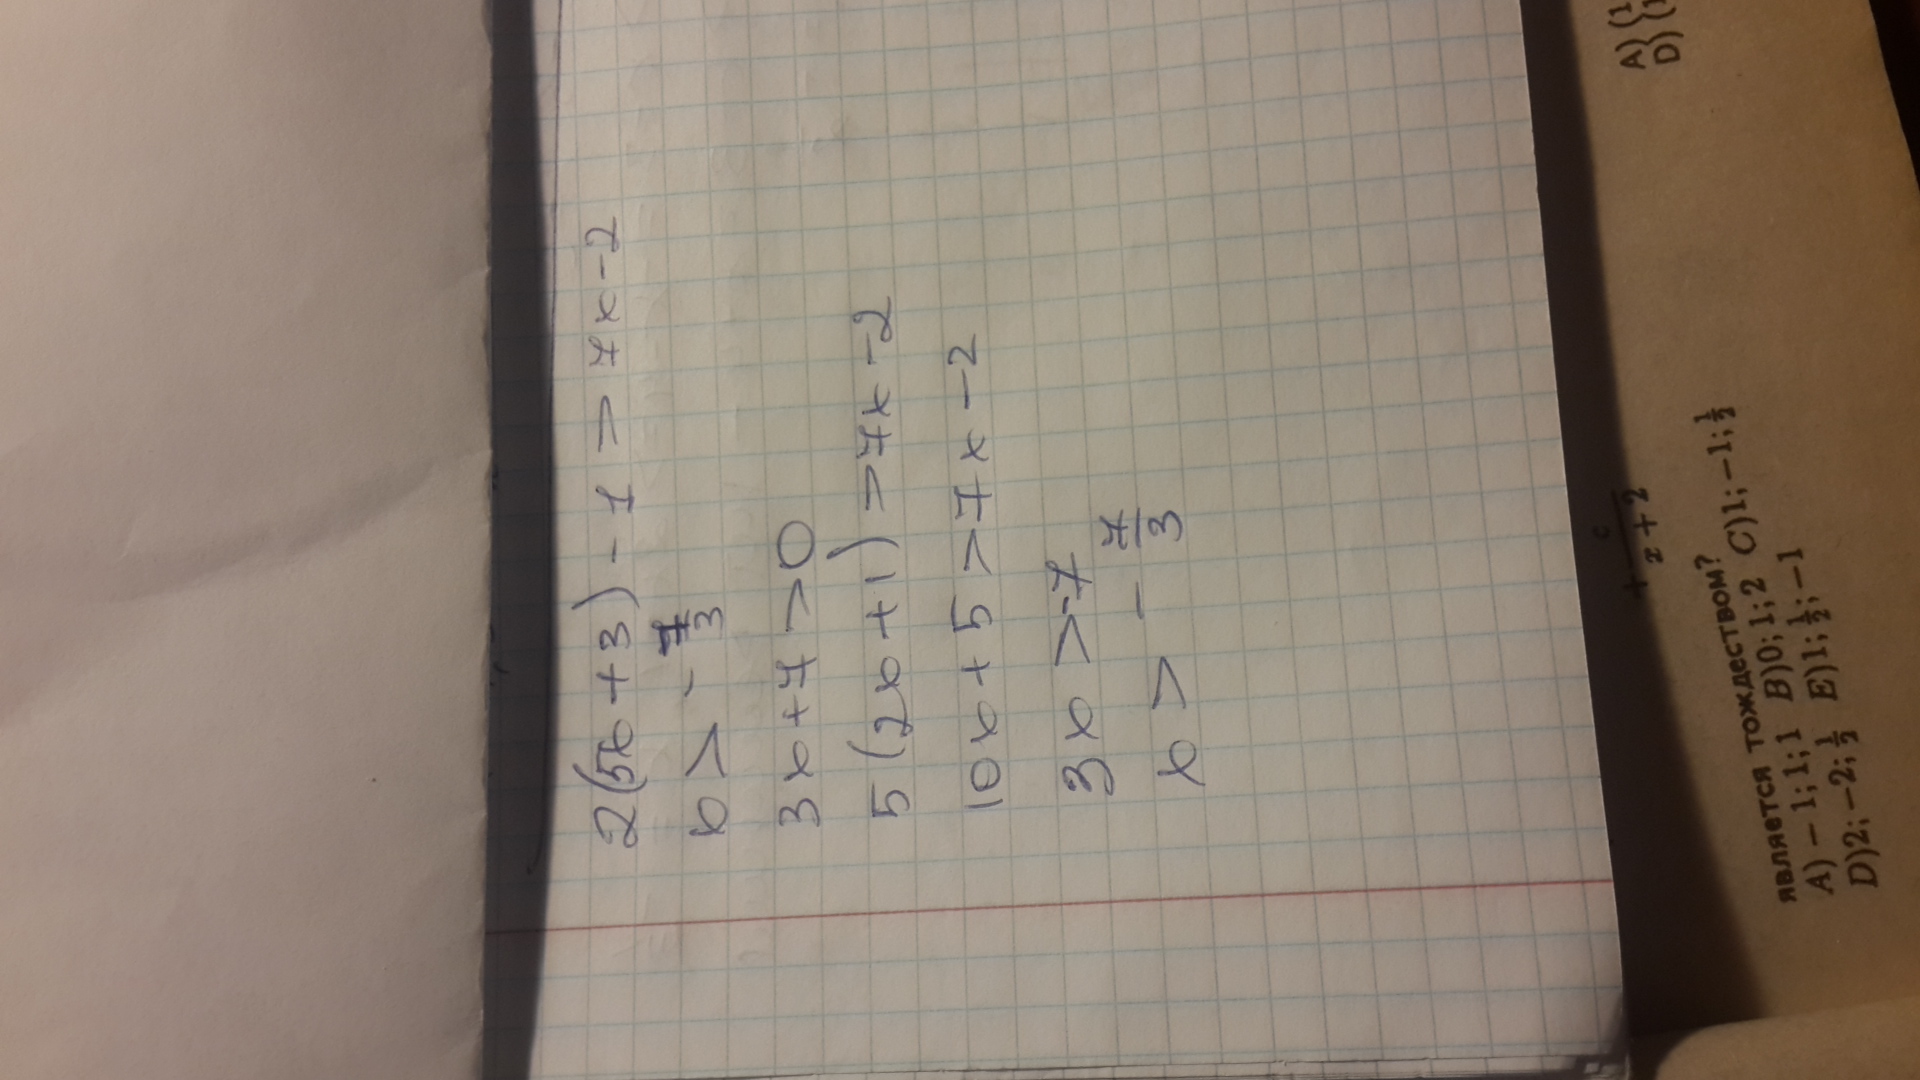 2(5x+3)-1>7x-2
x>-7/3
3x+7>0
5(2x+1)>7x-2
10x+5>7x-2
3x>-7
x>-7/3
A) (1
D) (1
+ c/(x+2)
является тождеством?
A) -1; 1; 1 B) 0; 1; 2 C) 1; -1; 1/2
D) 2; -2; 1/2 E) 1; 1/2; -1